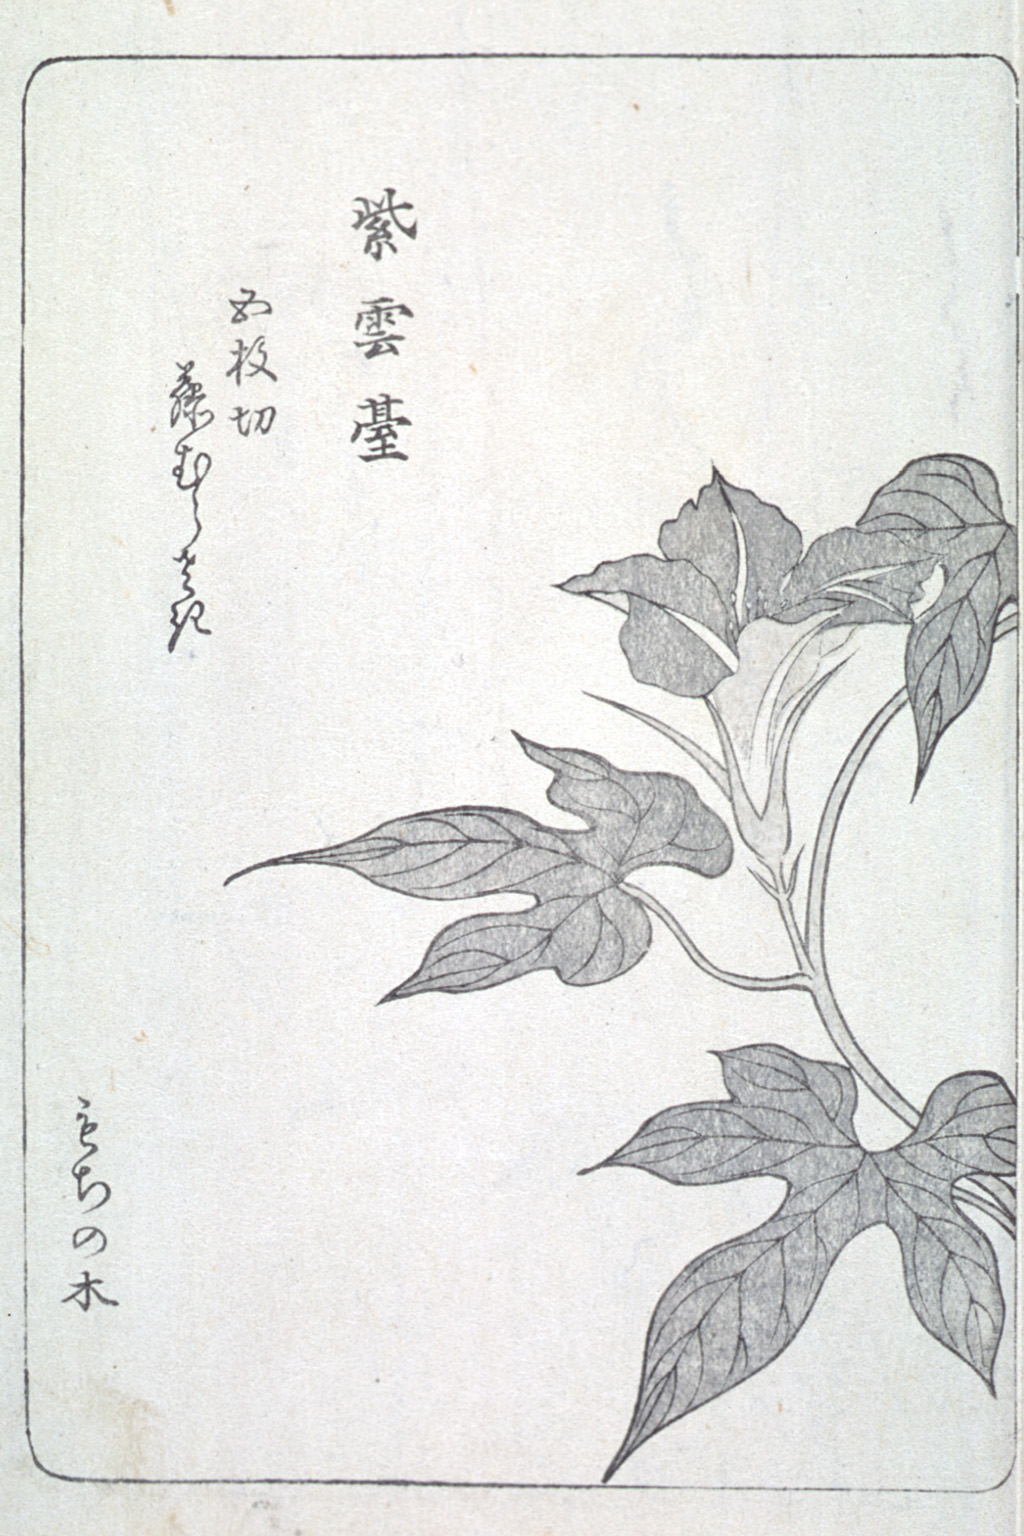 紫雲臺
五枚切
藤むらさき
もちの木